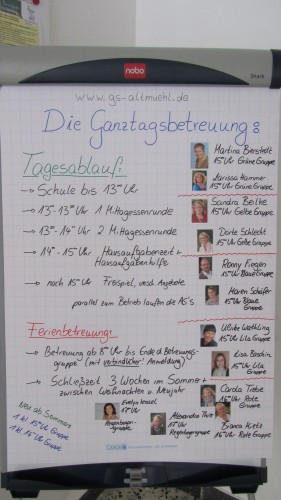 nobo
Shark
www.gs-altmuehl.de
Die Ganztagsbetreuung:
Tagesablauf:
→ Schule bis 13⁰⁰ Uhr
→ 13-13³⁰ Uhr 1. Mittagessenrunde
→ 13³⁰-14⁰⁰ Uhr 2. Mittagessenrunde
→ 14⁰⁰-15 Uhr Hausaufgabenzeit +
Hausaufgabenhilfe
→ nach 15 Uhr Freispiel, versch. Angebote
parallel zum Betrieb laufen die AG's
Ferienbetreuung:
→ Betreuung ab 8 Uhr bis Ende d. Betreuungs-
gruppe (mit verbindlicher Anmeldung)
→ Schließzeit 3 Wochen im Sommer +
zwischen Weihnachten u. Neujahr
Neu ab Sommer:
1 hl. 15 Uhr Gruppe
1 hl. 16 Uhr Gruppe
Martina
15 Uhr Grüne Gruppe
Larissa Hammer
15 Uhr Grüne Gruppe
Sandra Beilke
15 Uhr Gelbe Gruppe
Dörte Schlecht
15 Uhr Gelbe Gruppe
Ronny Fiegen
15 Uhr Blaue Gruppe
Maren Schäfer
15 Uhr Blaue
Gruppe
Ulrike
15 Uhr Lila Gruppe
Lisa
15 Uhr Lila
Gruppe
Carola Tiebe
16 Uhr Rote
Gruppe
Evelyn
17 Uhr
Regenbogen-
gruppe
Alexandra
17 Uhr
Regenbogengruppe
Bianca
16 Uhr Rote
Gruppe